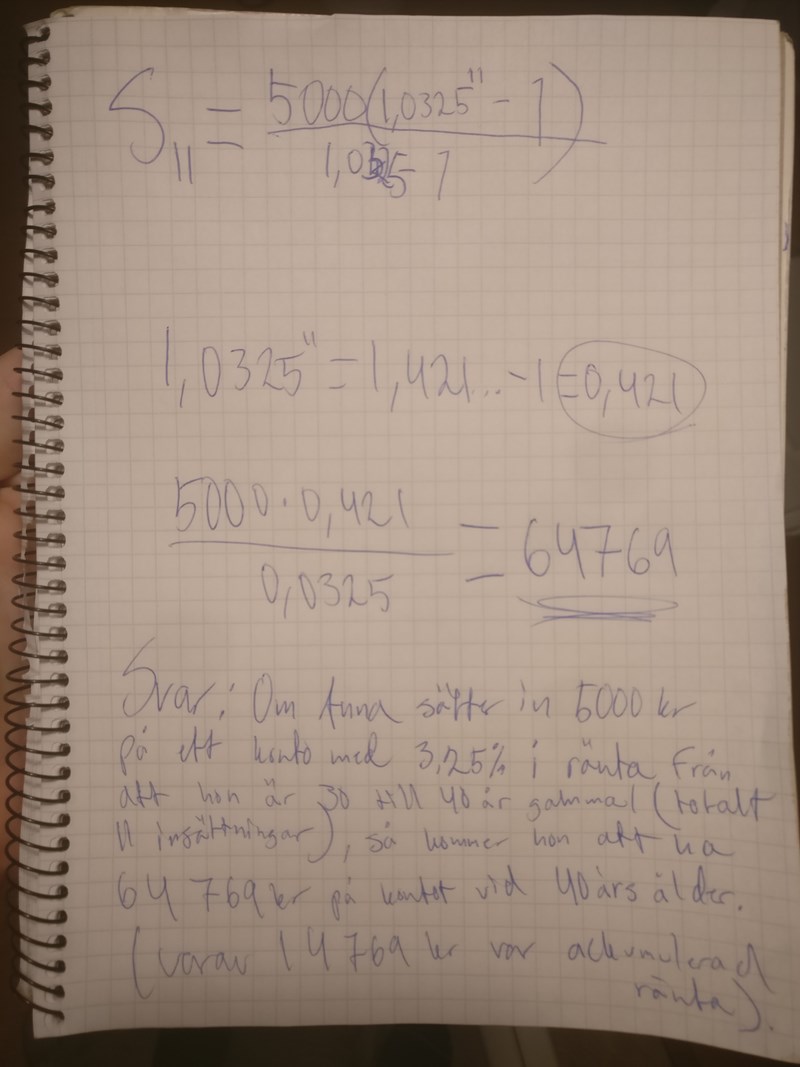 S₁₁ = 5000(1,0325¹¹ - 1)
1,0325 - 1
1,0325¹¹ = 1,421... - 1 = 0,421
5000 · 0,421
0,0325
= 64769
Svar: Om Anna sätter in 5000 kr
på ett konto med 3,25% i ränta från
att hon är 30 till 40 år gammal (totalt
11 insättningar), så kommer hon att ha
64 769 kr på kontot vid 40 års ålder.
(varav 14 769 kr var ackumulerad
ränta).